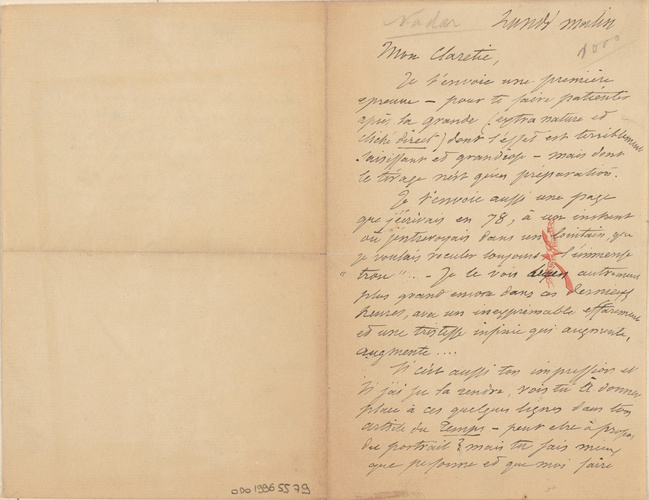 Nadar
Lundi matin
Mon Claretie,
Je t'envoie une première
épreuve — pour te faire patienter
après la grande (extra nature et
cliché direct) dont l'effet est terriblement
saisissant et grandiose — mais dont
le tirage n'est qu'en préparation.
Je t'envoie aussi une page
que j'écrivais en 78, à un instant
où j'entrevoyais dans un lointain, que
je voulais reculer toujours l'immense
"trou"... — Je le vois autrement
plus grand encore dans ces dernières
heures, avec un inexprimable effarement
et une tristesse infinie qui augmente,
augmente....
Si c'est aussi ton impression et
si j'ai su la rendre, vois tu à donner
place à ces quelques lignes dans ton
article du Temps — peut être à propos
du portrait? mais tu sais mieux
que personne et que moi faire
ODO 1996 55 79